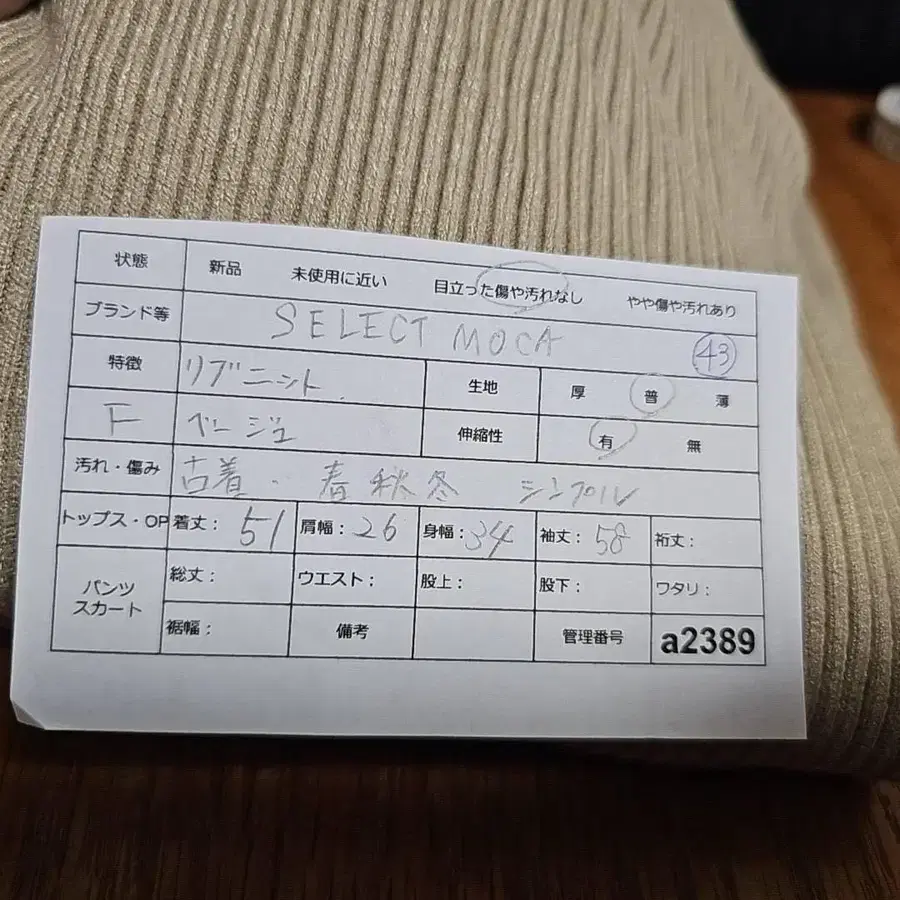 状態 新品 未使用に近い 目立った傷や汚れなし やや傷や汚れあり
ブランド等 SELECT MOCA 43
特徴 リブニット 生地 厚 普 薄
F ベージュ 伸縮性 有 無
汚れ・傷み 古着・春秋冬 シンプル
トップス・OP 着丈: 51 肩幅: 26 身幅: 34 袖丈: 58 裄丈:
パンツ スカート 総丈: ウエスト: 股上: 股下: ワタリ:
裾幅: 備考 管理番号 a2389